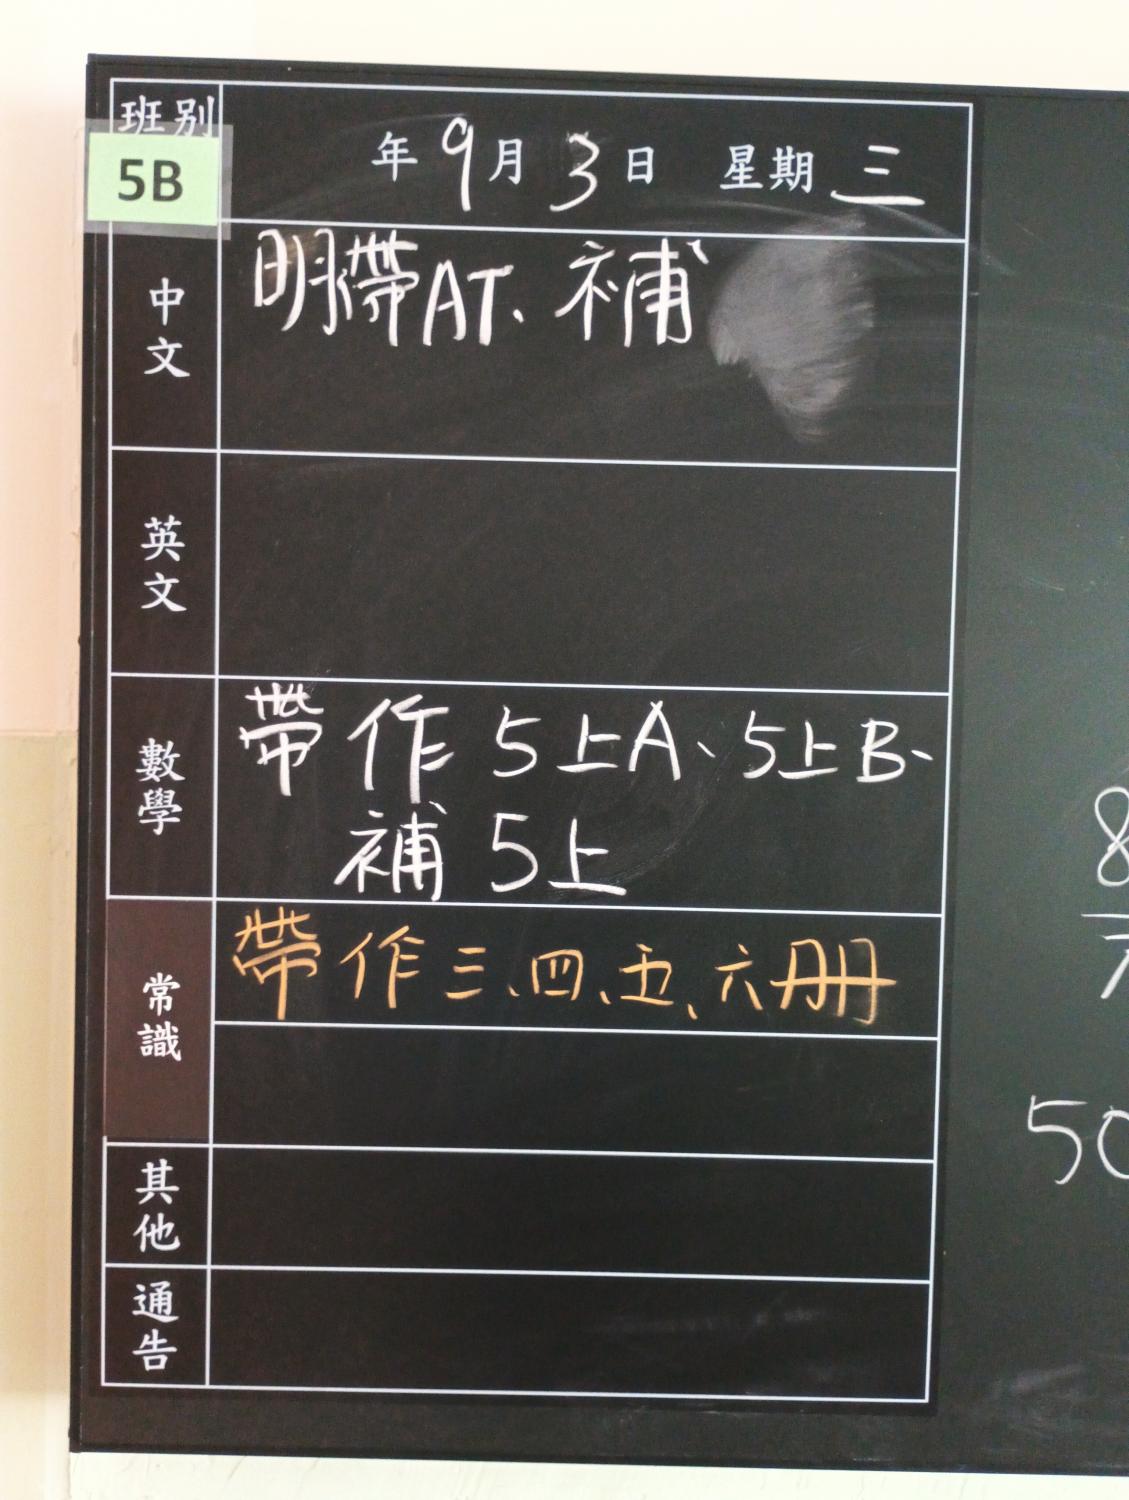 班別
5B
年 9 月 3 日 星期 三
中文
明帶AT、補
英文
數學
帶 作 5上A、5上B、
補 5上
常識
帶 作 三、四、五、六冊
其他
通告
8
7
50